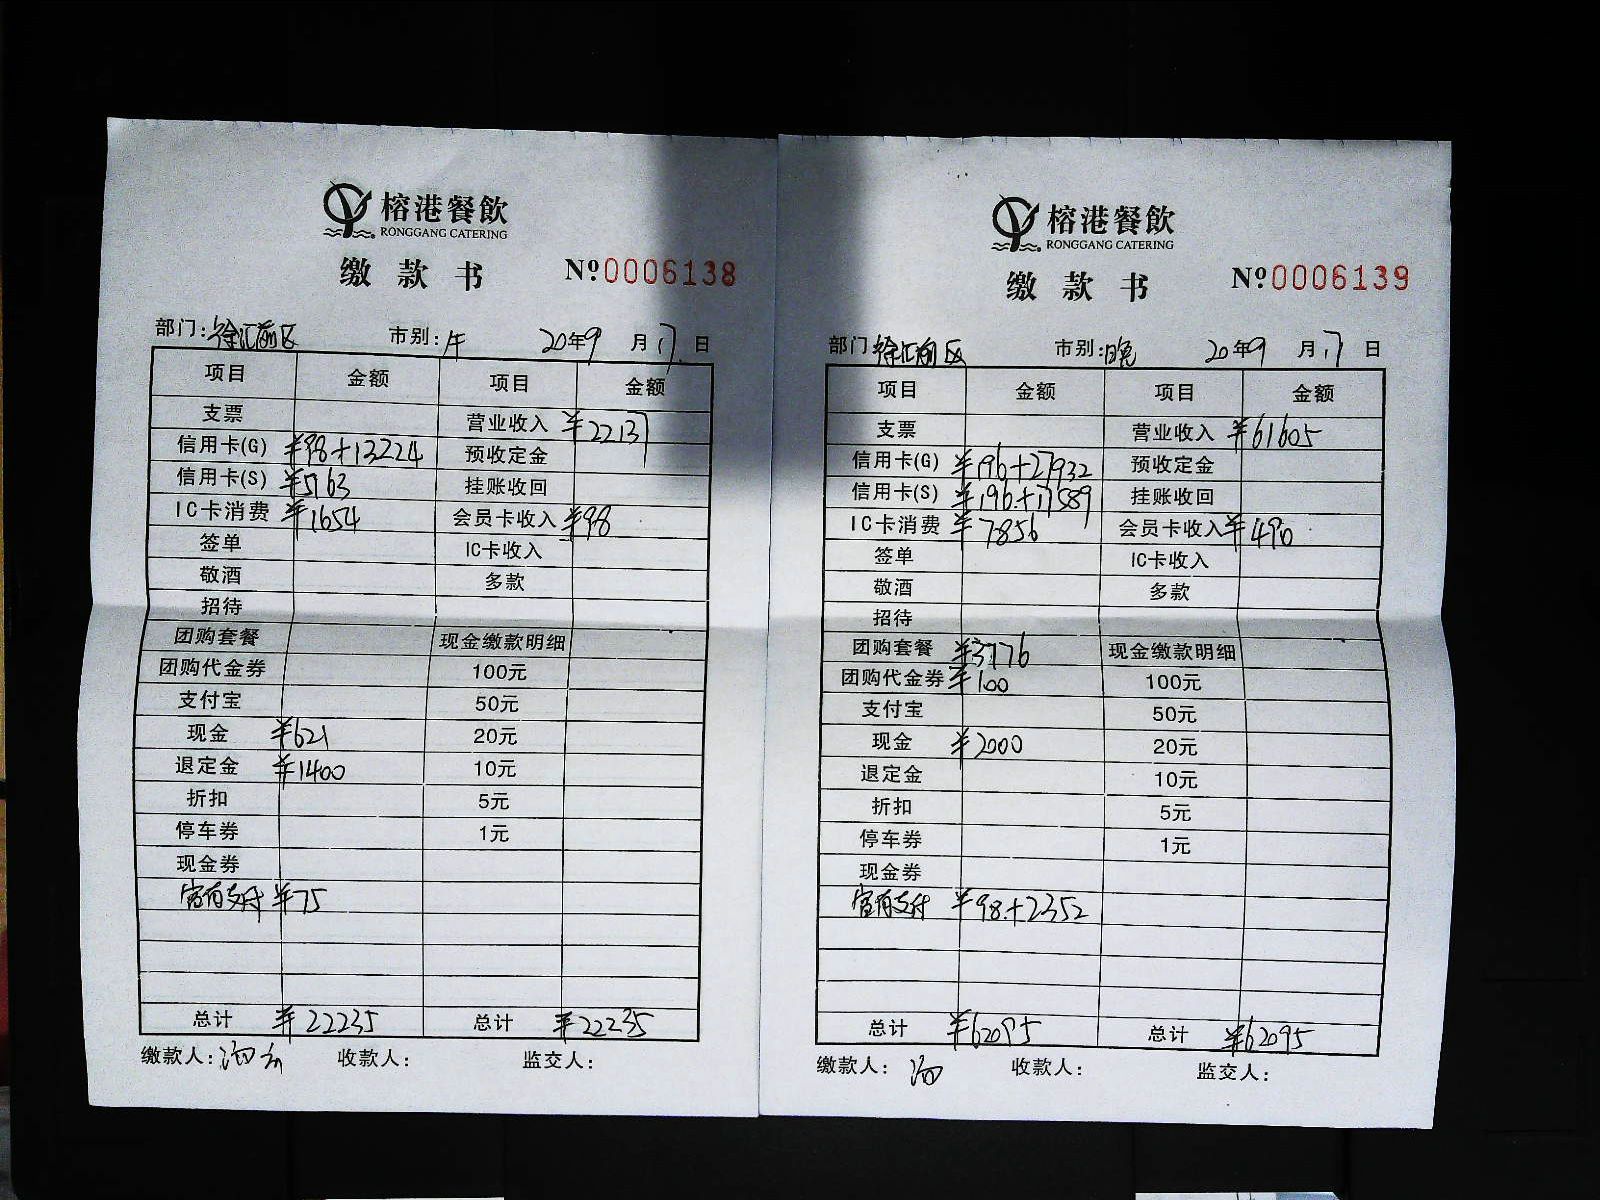 榕港餐飲
RONGGANG CATERING
缴款书 Nº0006138
部门:徐汇前区 市别:午 20年9月17日
项目 金额 项目 金额
支票 营业收入 ¥22137
信用卡(G) ¥98+13224 预收定金
信用卡(S) ¥5163 挂账收回
IC卡消费 ¥1654 会员卡收入 ¥98
签单 IC卡收入
敬酒 多款
招待
团购套餐 现金缴款明细
团购代金券 100元
支付宝 50元
现金 ¥621 20元
退定金 ¥1400 10元
折扣 5元
停车券 1元
现金券
富有支付 ¥75
总计 ¥22235 总计 ¥22235
缴款人: 收款人: 监交人:
榕港餐飲
RONGGANG CATERING
缴款书 Nº0006139
部门:徐汇前区 市别:晚 20年9月17日
项目 金额 项目 金额
支票 营业收入 ¥61605
信用卡(G) ¥196+27932 预收定金
信用卡(S) ¥196+17589 挂账收回
IC卡消费 ¥7856 会员卡收入 ¥490
签单 IC卡收入
敬酒 多款
招待
团购套餐 ¥3776 现金缴款明细
团购代金券 ¥100 100元
支付宝 50元
现金 ¥2000 20元
退定金 10元
折扣 5元
停车券 1元
现金券
富有支付 ¥98+2352
总计 ¥62095 总计 ¥62095
缴款人: 收款人: 监交人: